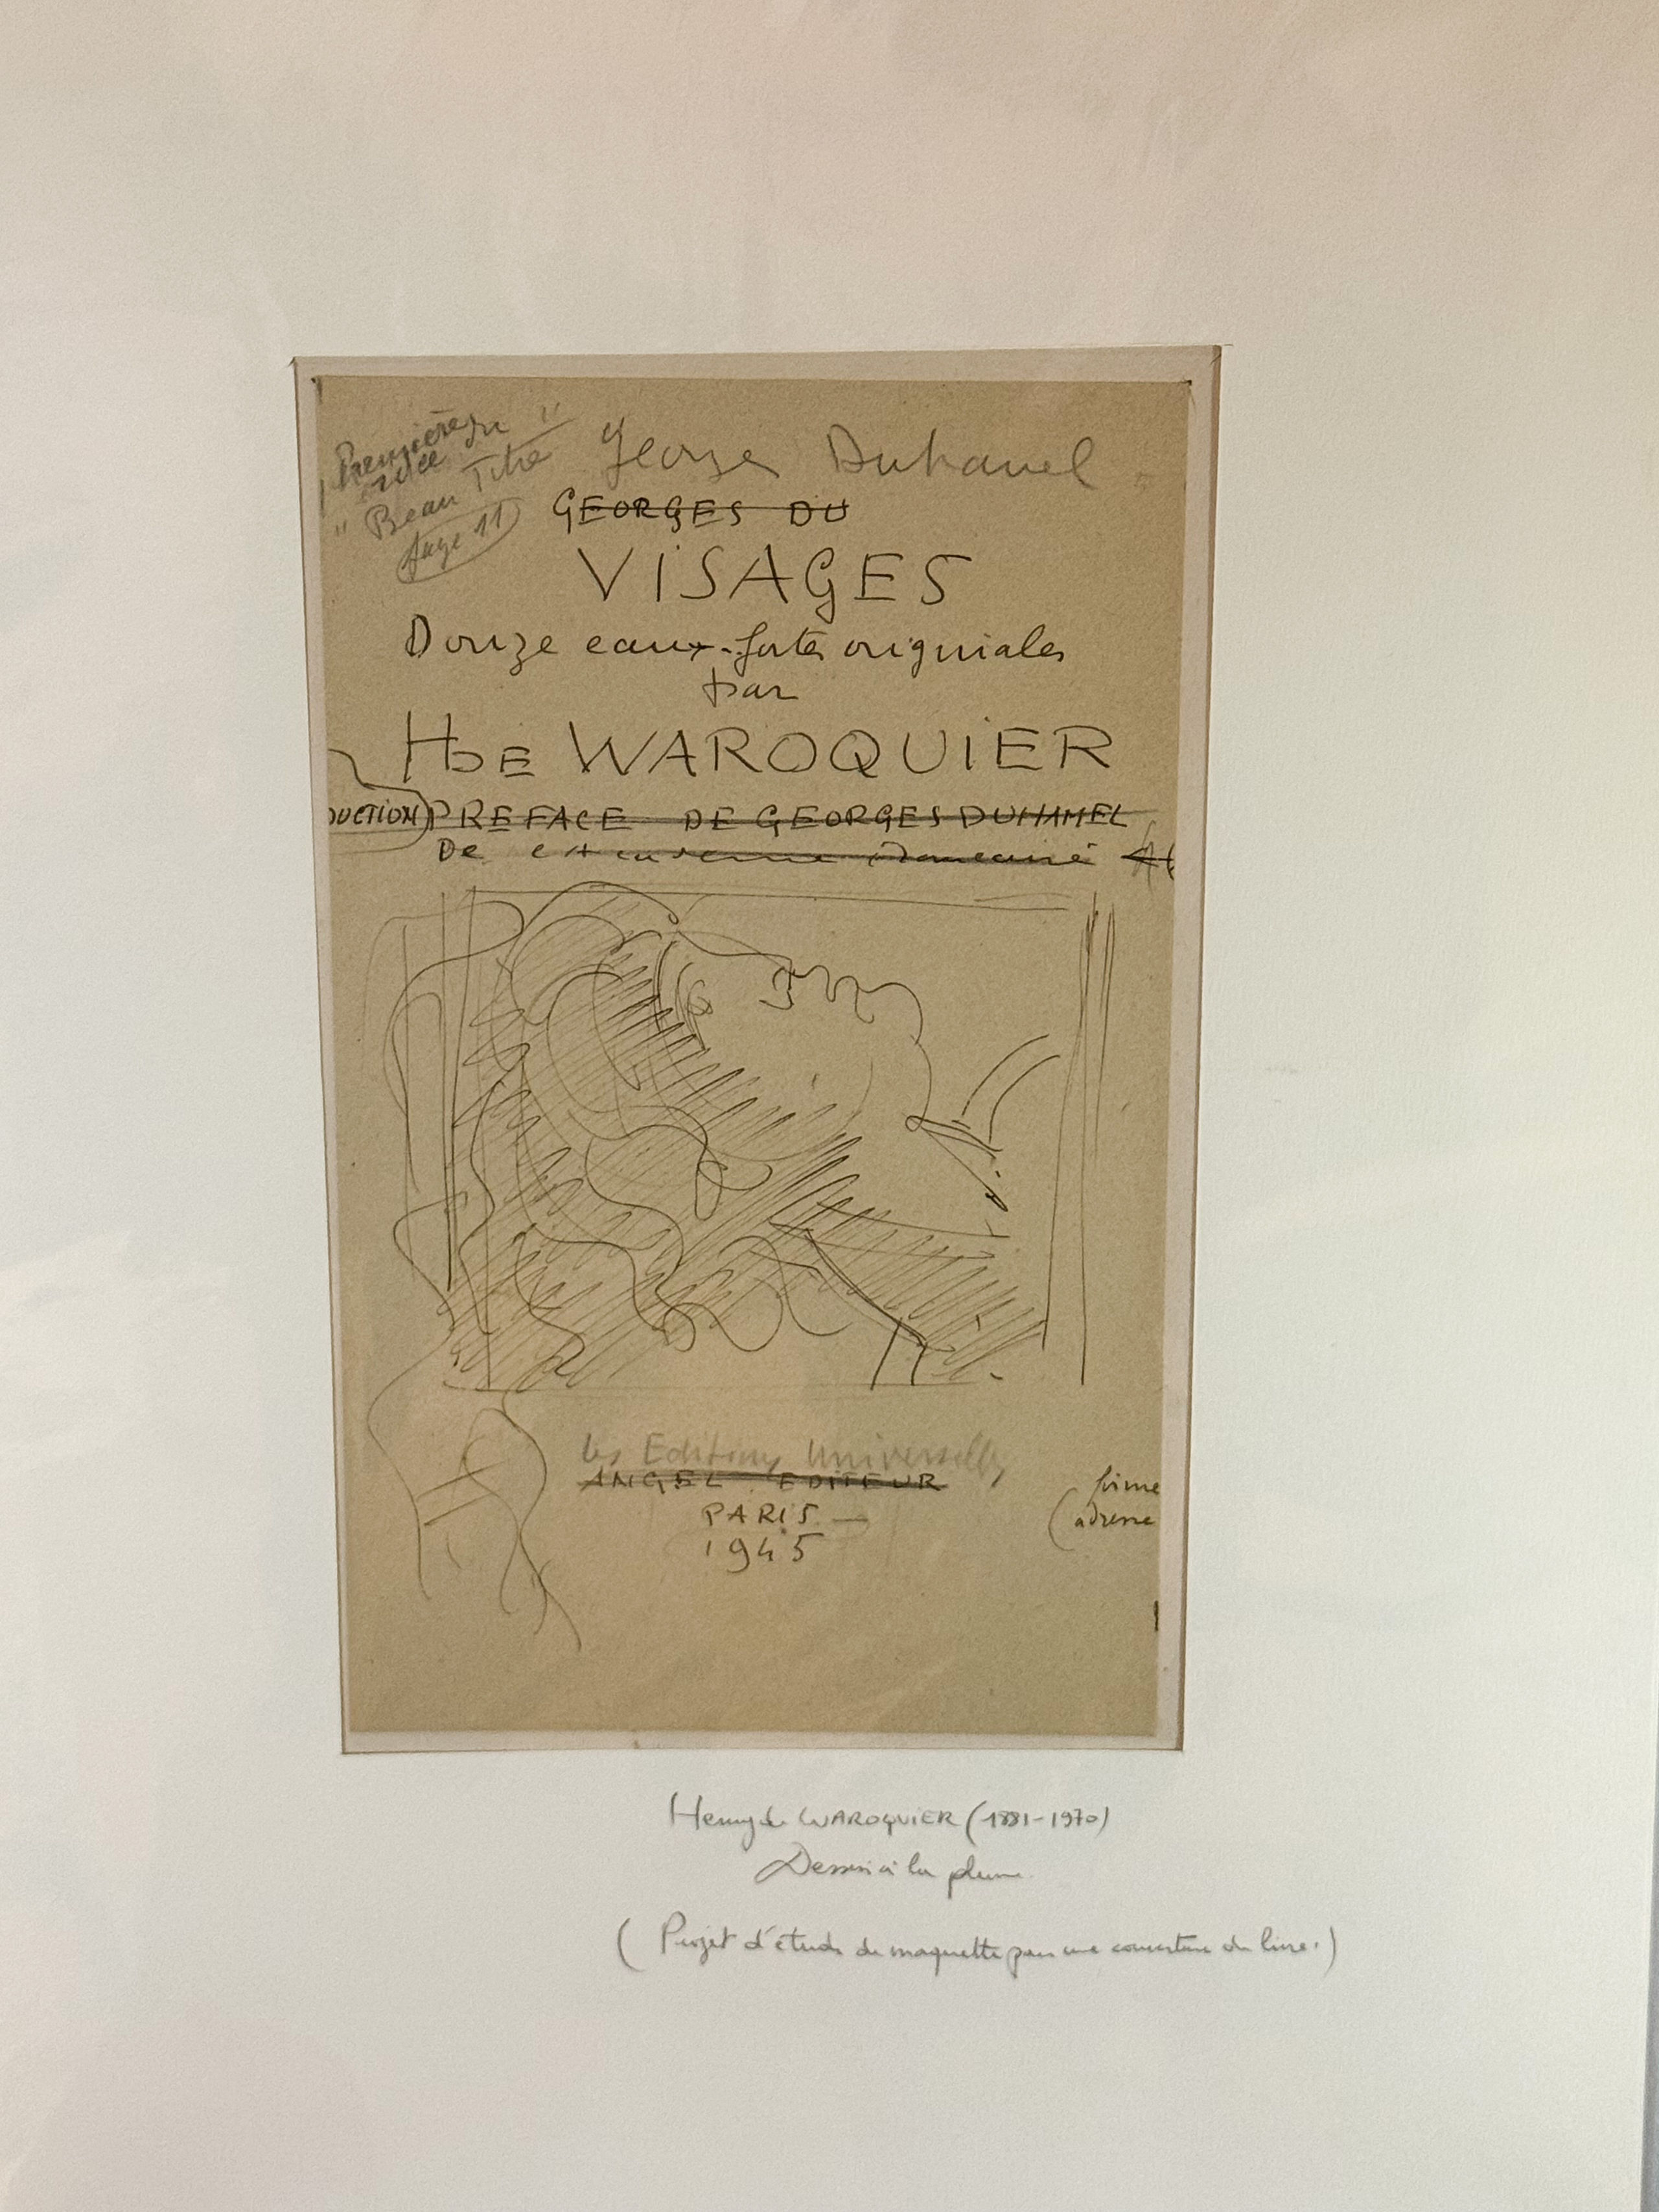 Première
idée du
" Beau Titre "
page 11
Georges Duhamel
GEORGES DU
VISAGES
Douze eaux-fortes originales
par
H DE WAROQUIER
DUCTION) PREFACE DE GEORGES DUHAMEL
De
Les Editions Universelles
ANGEL EDITEUR
PARIS —
1945
firme
(adresse
Henry de WAROQUIER (1881-1970)
Dessin à la plume
( Projet d'étude de maquette pour une couverture de livre.)